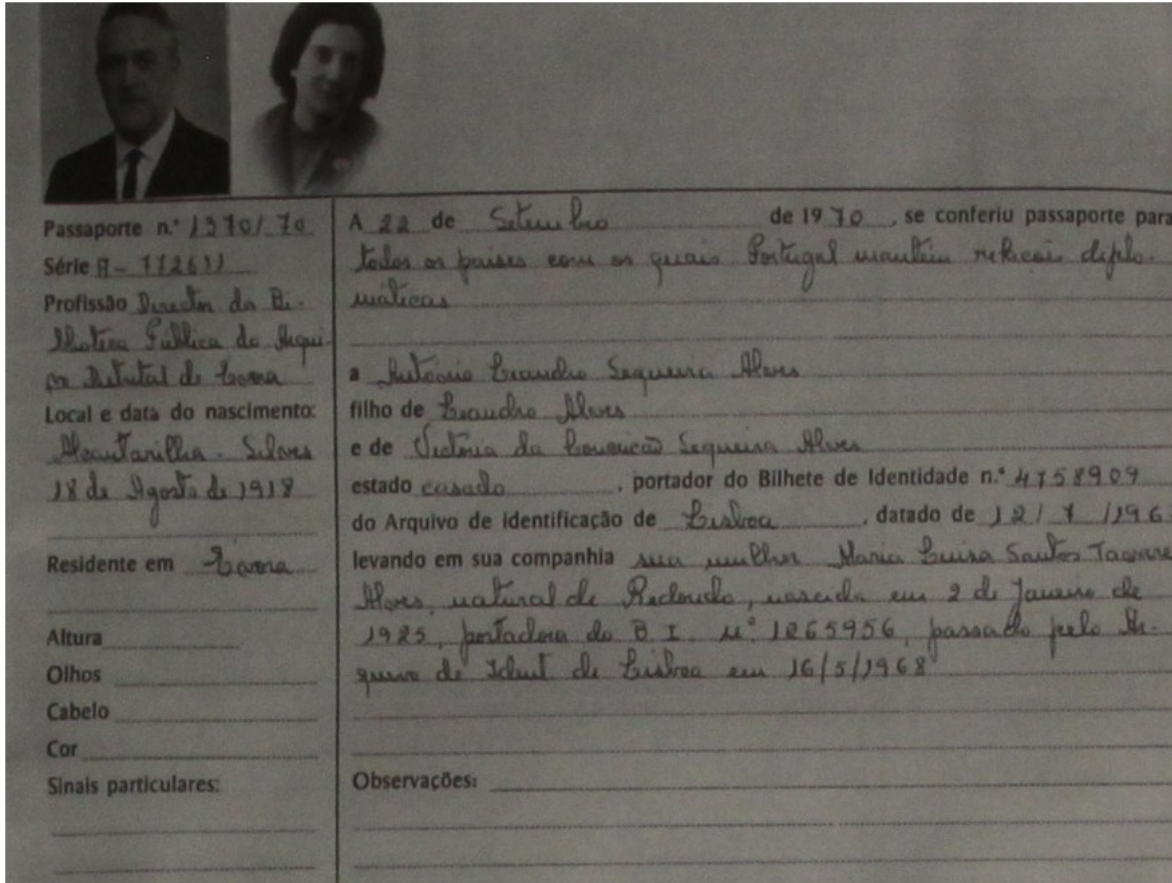 Passaporte n.º 1370/70
Série A - 112631
Profissão Director da Bi-
blioteca Pública do Arqui-
vo Distrital de
Local e data do nascimento:
Alcantarilha - Silves
18 de Agosto de 1918
Residente em
Altura
Olhos
Cabelo
Cor
Sinais particulares:
A 22 de Setembro de 1970, se conferiu passaporte para
todos os países com os quais Portugal mantém relações diplo-
máticas
a António Leandro Sequeira Alves
filho de Leandro Alves
e de Victória da Conceição Sequeira Alves
estado casado, portador do Bilhete de Identidade n.º 4758909
do Arquivo de identificação de Lisboa, datado de 12/ /196
levando em sua companhia sua mulher Maria Luisa Santos Tavares
Alves, natural de Redondo, nascida em 2 de Janeiro de
1925, portadora do B I. nº 1265956, passado pelo Ar-
quivo de Ident de Lisboa em 16/5/1968
Observações: